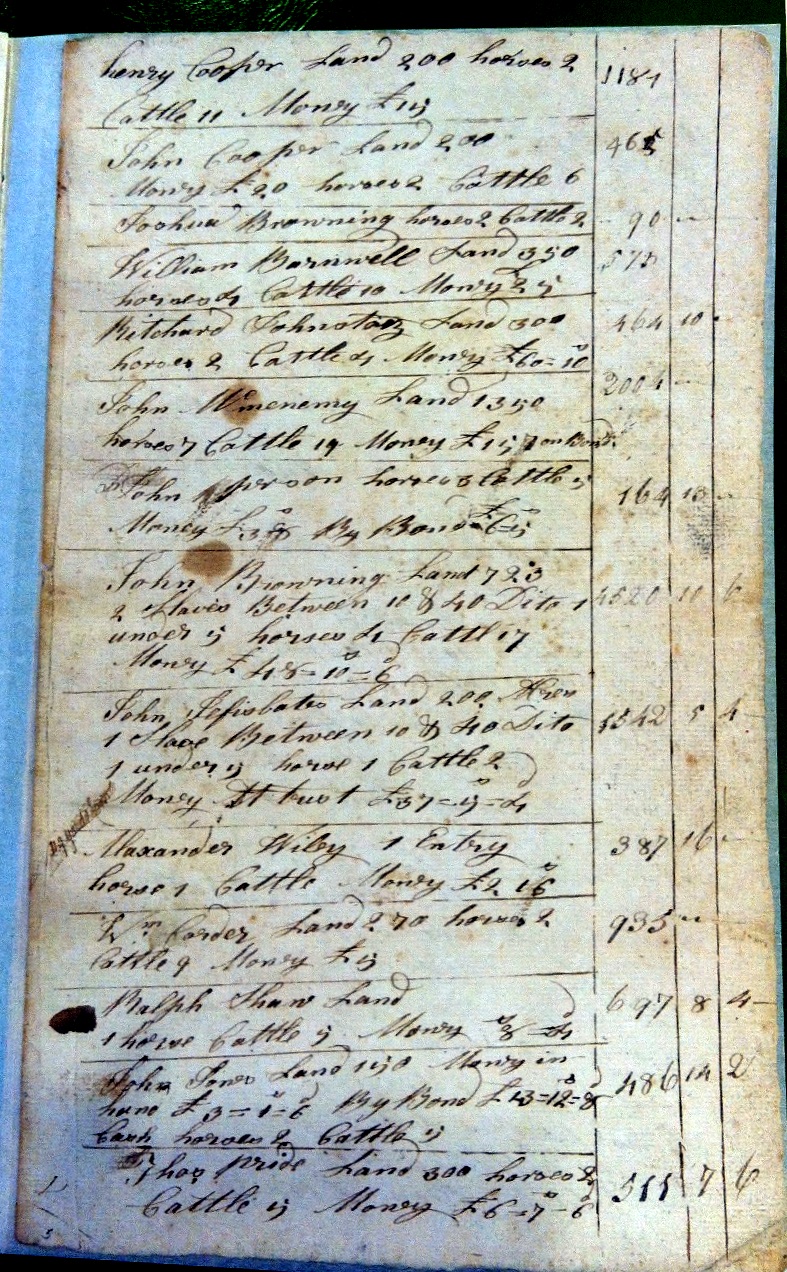 henry Cooper Land 200 horses 2 1184
Cattle 11 Money £15
John Cooper Land 200 465
Money £20 horses 2 Cattle 6
Joshua Browning horses 2 Cattle 2 90
William Barnwell Land 350 575
horses 4 Cattle 10 Money 25
Ritchard Land 300 464 10
horses 2 Cattle 4 Money £60=10
John Mcmenemy Land 1350 2004
horses 7 Cattle 19 Money £15 on Bond
John horses 3 Cattle 5 164 13
Money £3 8 By Bond £6=5
John Browning Land 723
2 Slaves Between 10 & 40 Dito 1 4520 10 6
under 5 horses 4 Cattl 17
Money £48=10=6
John Land 200 Acres
1 Slave Between 10 & 40 Dito 1542 5 4
1 under 5 horse 1 Cattle 2
Money At trust £37=5=4
Alaxander Wiley 1 Entry 387 16
horse 1 Cattle Money £2 16
Wm Carder Land 270 horses 2 935
Cattle 9 Money £5
Ralph Shaw Land 697 8 4
1 horse Cattle 5 Money 8=4
John Jones Land 150 Money in 486 14 2
hand £3=1=6 By Bond £13=12=8
Cash horses 2 Cattle 5
Thos pride Land 300 horses 2 511 7 6
Cattle 5 Money £6=7=6